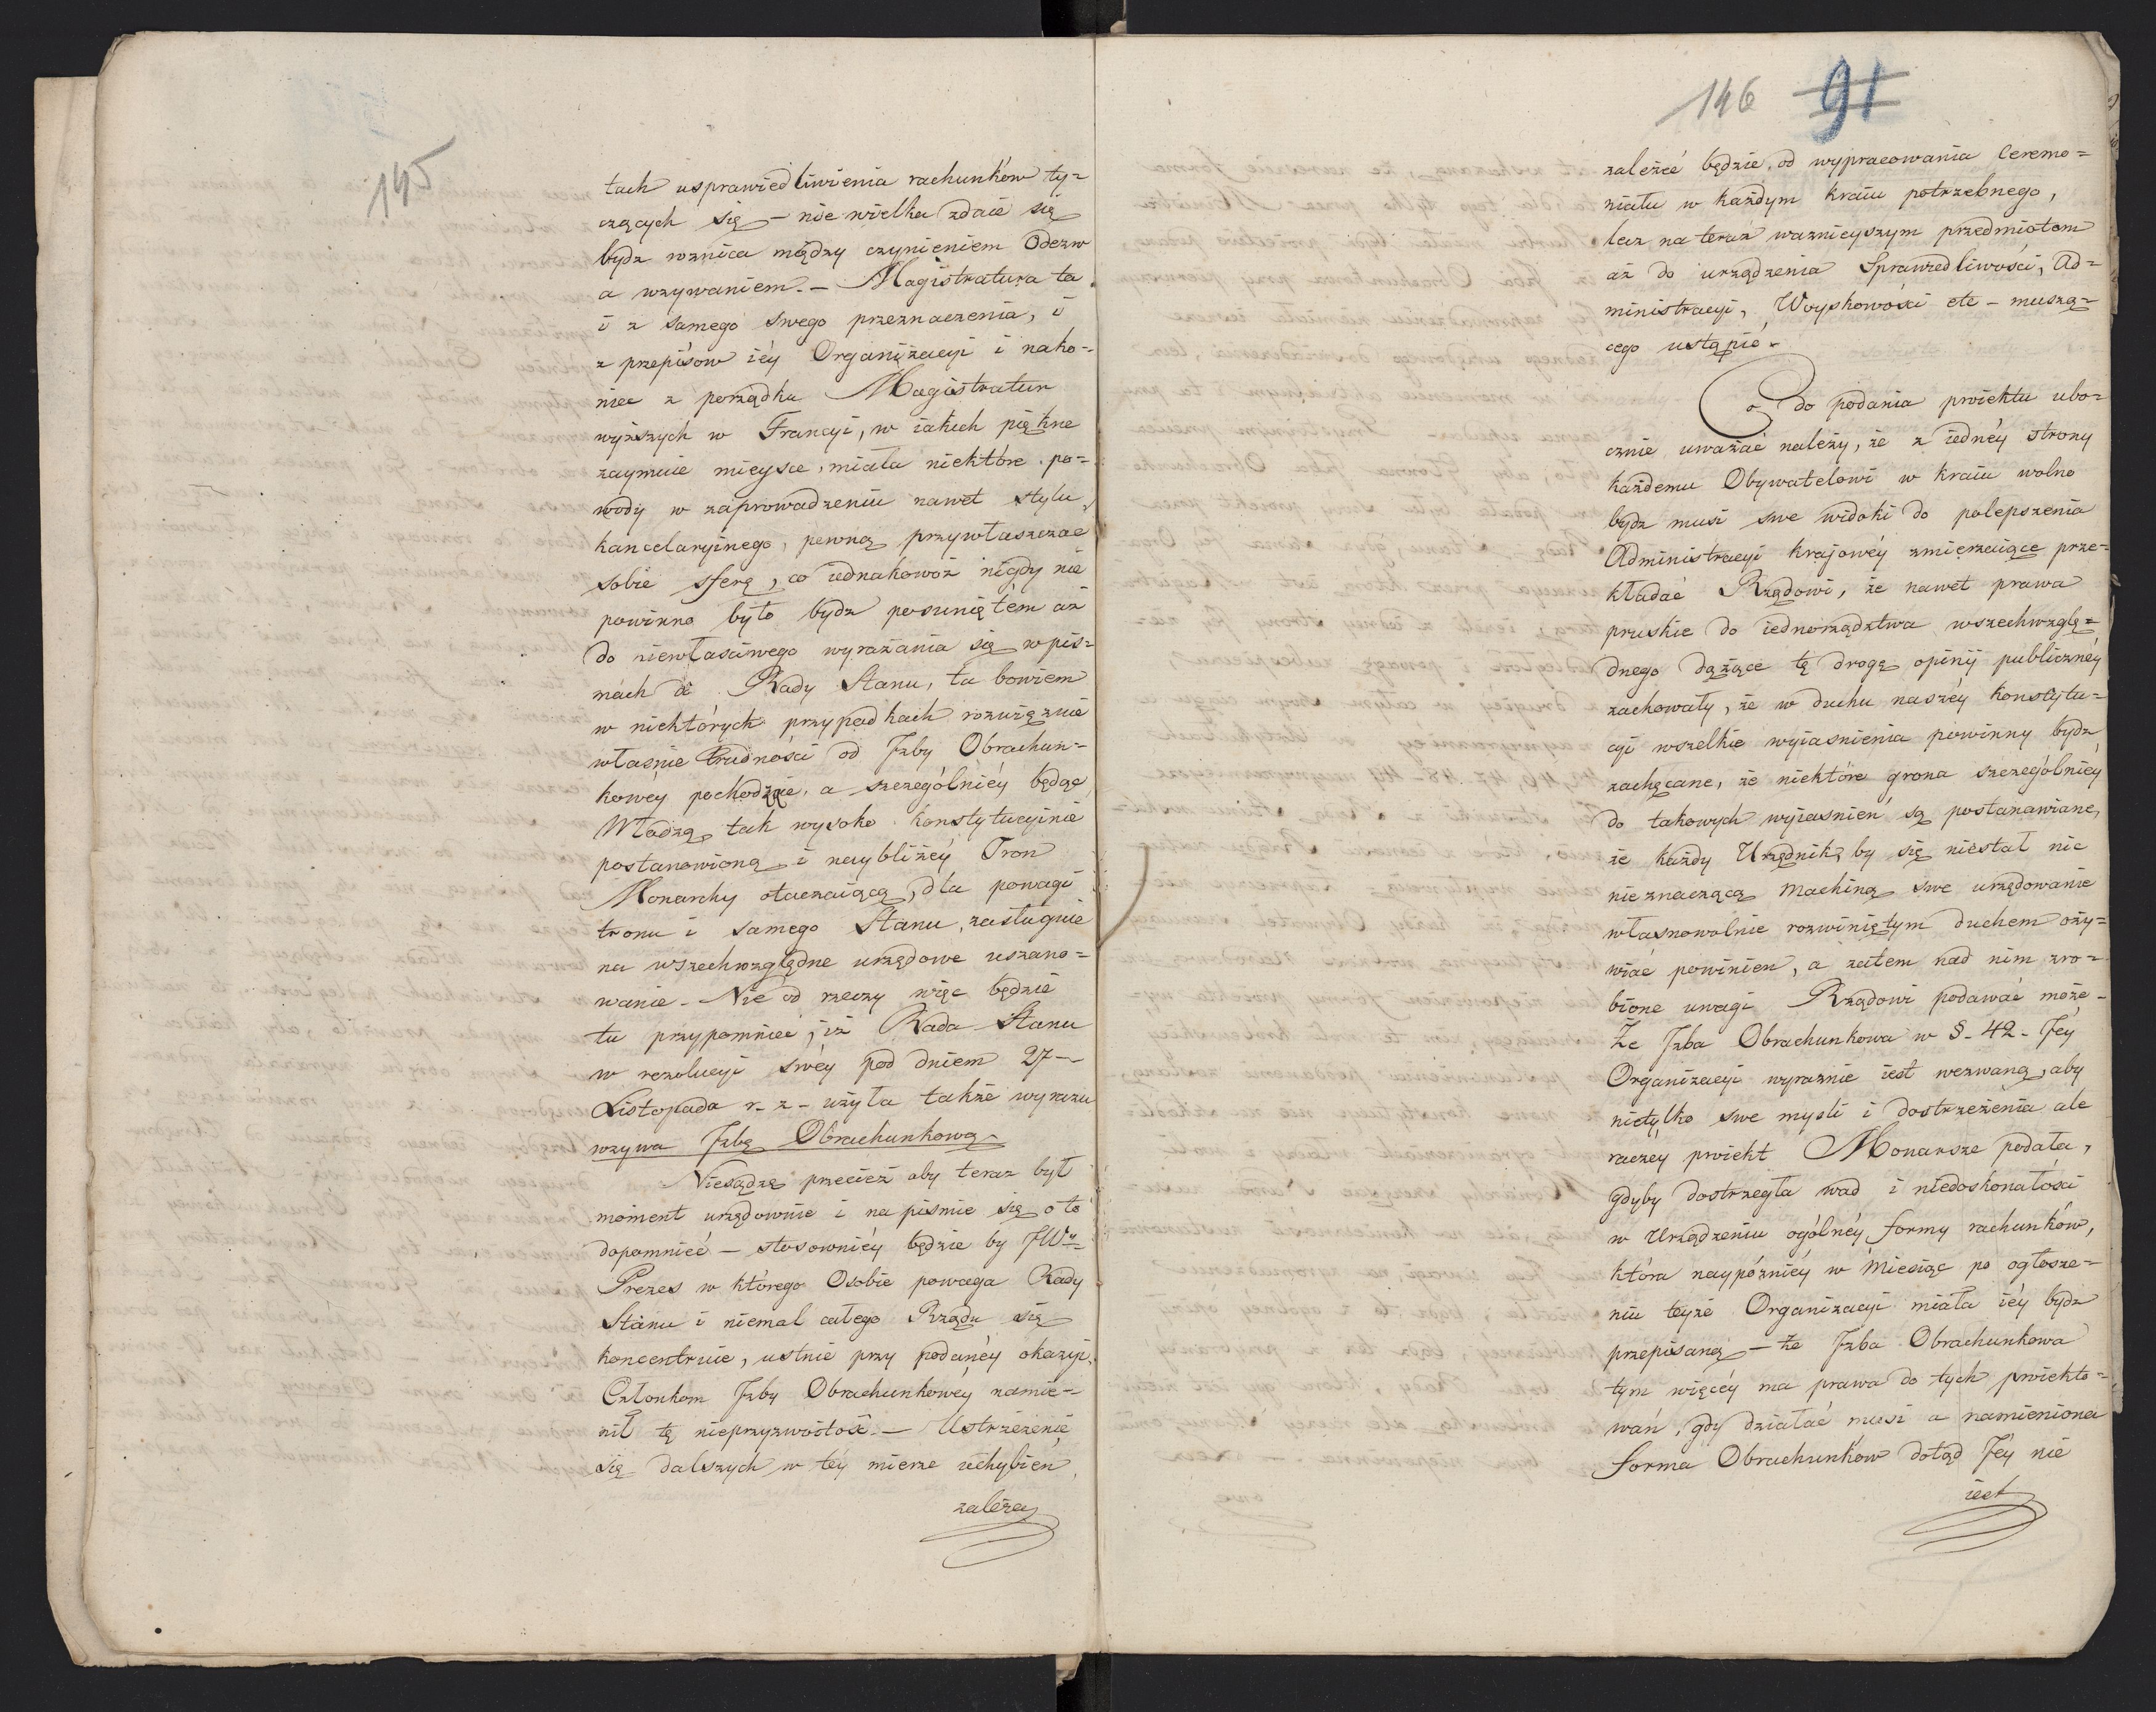 145
tach usprawiedliwienia rachunków ty=
czących się – nie wielka zdaie się
bydz roznica między czynieniem Odezw
a wzywaniem. – Magistratura ta
i z samego swego przeznaczenia, i
z przepisow iéy Organizacyi i nako=
niec z porządku Magistratur
wyższych w Francyi, w iakich piękne
zaymuie mieysce, miała niektóre po=
wody w zaprowadzeniu nawet stylu
kancelaryinego, pewną przywłaszczać
sobie sferę, co iednakowoż nigdy nie
powinno było bydz posuniętém aż
do niewłaściwego wyrażania się w pis=
mach do Rady Stanu, ta bowiem
w niektórych przypadkach rozwiązuie
własnie trudności od Izby Obrachun=
kowéy pochodzące, a szczególniéy będąc
Władzą tak wysoko konstytucyinie
postanowioną i naybliżéy Tron
Monarchy otaczaiącą, dla powagi
tronu i samego Stanu, zasługuie
na wszechwzględne urzędowe uszano=
wanie – Nie od rzeczy więc będzie
tu przypomnieć, iż Rada Stanu
w rezolucyi swéy pod dniem 27 –
Listopada r – z – użyła także wyrazu
wzywa Izbę Obrachunkową –
Niesądzę przecież aby teraz był
moment urzędownie i na pismie się o to
dopomnieć – stosowniéy będzie by JWy
Prezes w którego Osobie powaga Rady
Stanu i niemal całego Rządu się
koncentruie, ustnie przy podanéy okazyi
Członkom Izby Obrachunkowéy namie=
nił tę nieprzyzwoitość. – Ustrzeżenie
się dalszych w téy mierze uchybień
zależeć
146 91
zależeć będzie od wypracowania Ceremo=
niału w każdym kraiu potrzebnego,
lecz na teraz ważnieyszym przedmiotom
aż do urządzenia Sprawiedliwości, Ad=
ministracyi, Woyskowości etc – muszą=
cego ustąpić.
Co do podania proiektu ubo=
cznie uważać należy, że z iednéy strony
każdemu Obywatelowi w kraiu wolno
bydz musi swe widoki do polepszenia
Administracyi krajowéy zmierzaiące prze=
kładać Rządowi, że nawet prawa
pruskie do iednorządztwa wszechwzglę=
dnego dążące tę drogę opinij publicznéy
zachowały, że w duchu naszéy konstytu=
cyi wszelkie wyiasnienia powinny bydz
zachęcane, że niektóre grona szczególniéy
do takowych wyiasnień są postanawiane,
że każdy Urzędnik, by się niestał nic
nieznaczącą machiną swe urzędowanie
własnowolnie rozwiniętym duchem oży=
wiać powinien, a zatem nad nim zro=
bione uwagi Rządowi podawać może –
Że Izba Obrachunkowa w §. 42 – Jéy
Organizacyi wyraznie iest wezwaną, aby
nietylko swe mysli i dostrzeżenia ale
raczéy proiekt Monarsze podała,
gdyby dostrzegła wad i niedoskonałości
w Urządzeniu ogólnéy formy rachunków,
która naypóźniéy w Miesiąc po ogłosze=
niu teyże Organizacyi miała iéy bydz
przepisaną – że Izba Obrachunkowa
tym więcéy ma prawa do tych proiekto=
wań, gdy działać musi a namieniona
forma Obrachunków dotąd Jéy nie
iest